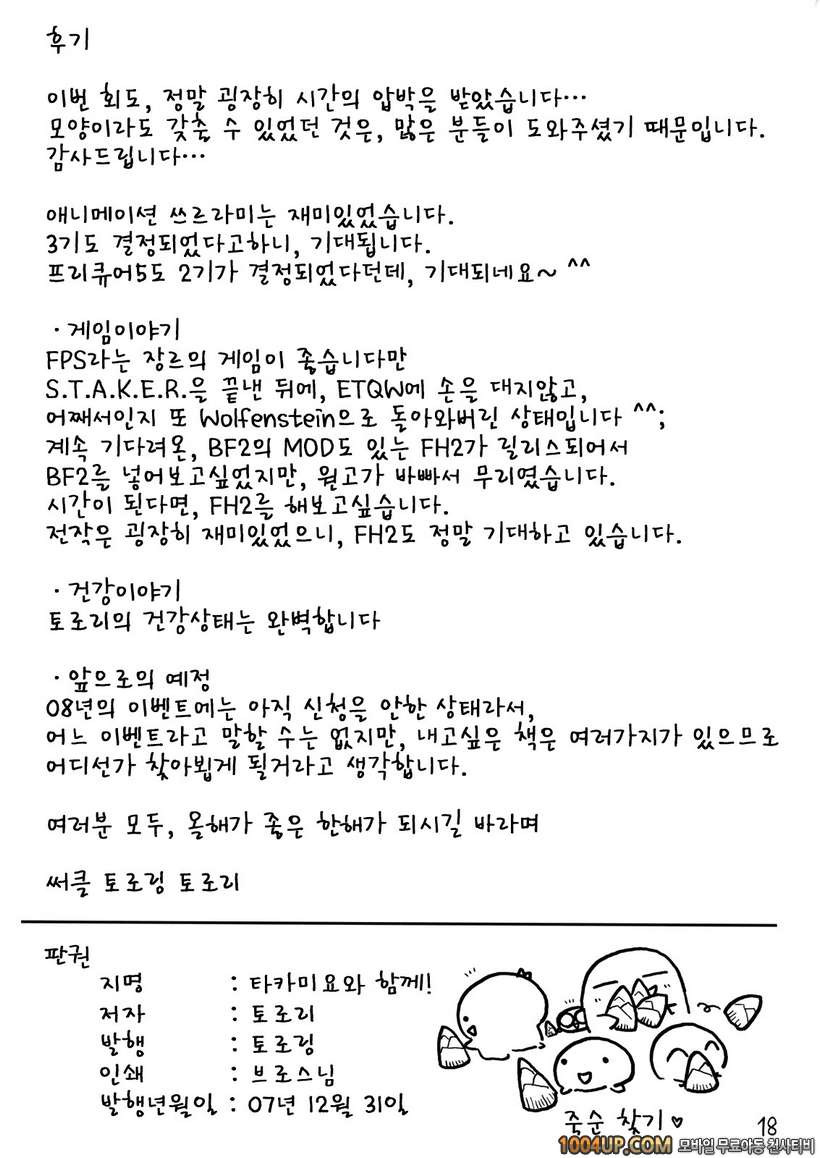 후기
이번 회도, 정말 굉장히 시간의 압박을 받았습니다…
모양이라도 갖출 수 있었던 것은, 많은 분들이 도와주셨기 때문입니다.
감사드립니다…
애니메이션 쓰르라미는 재미있었습니다.
3기도 결정되었다고하니, 기대됩니다.
프리큐어5도 2기가 결정되었다던데, 기대되네요~ ^^
· 게임이야기
FPS라는 장르의 게임이 좋습니다만
S.T.A.K.E.R.을 끝낸 뒤에, ETQW에 손을 대지않고,
어째서인지 또 Wolfenstein으로 돌아와버린 상태입니다 ^^;
계속 기다려온, BF2의 MOD도 있는 FH2가 릴리스되어서
BF2를 넣어보고싶었지만, 원고가 바빠서 무리였습니다.
시간이 된다면, FH2를 해보고싶습니다.
전작은 굉장히 재미있었으니, FH2도 정말 기대하고 있습니다.
· 건강이야기
토로리의 건강상태는 완벽합니다
· 앞으로의 예정
08년의 이벤트에는 아직 신청을 안한 상태라서,
어느 이벤트라고 말할 수는 없지만, 내고싶은 책은 여러가지가 있으므로
어디선가 찾아뵙게 될거라고 생각합니다.
여러분 모두, 올해가 좋은 한해가 되시길 바라며
써클 토로링 토로리
판권
지명 : 타카미요와 함께!
저자 : 토로리
발행 : 토로링
인쇄 : 브로스님
발행년월일 : 07년 12월 31일
죽순 찾기♥
18
1004UP.COM 모바일 무료야동 천사티비